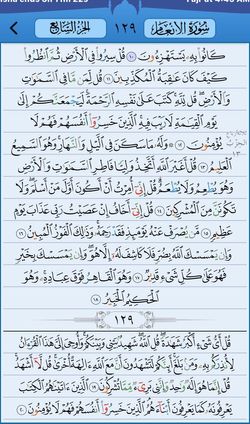 سُورَةُ الأَنْعَام ١٢٩ الجُزْءُ السَّابِعُ
كَانُوا۟ بِهِۦ يَسْتَهْزِءُونَ ١٠ قُلْ سِيرُوا۟ فِى ٱلْأَرْضِ ثُمَّ ٱنظُرُوا۟
كَيْفَ كَانَ عَـٰقِبَةُ ٱلْمُكَذِّبِينَ ١١ قُل لِّمَن مَّا فِى ٱلسَّمَـٰوَٰتِ
وَٱلْأَرْضِ ۖ قُل لِّلَّهِ ۚ كَتَبَ عَلَىٰ نَفْسِهِ ٱلرَّحْمَةَ ۚ لَيَجْمَعَنَّكُمْ إِلَىٰ
يَوْمِ ٱلْقِيَـٰمَةِ لَا رَيْبَ فِيهِ ۚ ٱلَّذِينَ خَسِرُوٓا۟ أَنفُسَهُمْ فَهُمْ لَا
يُؤْمِنُونَ ١٢ ۞ وَلَهُۥ مَا سَكَنَ فِى ٱلَّيْلِ وَٱلنَّهَارِ ۚ وَهُوَ ٱلسَّمِيعُ
ٱلْعَلِيمُ ١٣ قُلْ أَغَيْرَ ٱللَّهِ أَتَّخِذُ وَلِيًّا فَاطِرِ ٱلسَّمَـٰوَٰتِ وَٱلْأَرْضِ
وَهُوَ يُطْعِمُ وَلَا يُطْعَمُ ۗ قُلْ إِنِّىٓ أُمِرْتُ أَنْ أَكُونَ أَوَّلَ مَنْ أَسْلَمَ ۖ وَلَا
تَكُونَنَّ مِنَ ٱلْمُشْرِكِينَ ١٤ قُلْ إِنِّىٓ أَخَافُ إِنْ عَصَيْتُ رَبِّى عَذَابَ يَوْمٍ
عَظِيمٍ ١٥ مَّن يُصْرَفْ عَنْهُ يَوْمَئِذٍ فَقَدْ رَحِمَهُۥ ۚ وَذَٰلِكَ ٱلْفَوْزُ ٱلْمُبِينُ ١٦
وَإِن يَمْسَسْكَ ٱللَّهُ بِضُرٍّ فَلَا كَاشِفَ لَهُۥٓ إِلَّا هُوَ ۖ وَإِن يَمْسَسْكَ بِخَيْرٍ
فَهُوَ عَلَىٰ كُلِّ شَىْءٍ قَدِيرٌ ١٧ وَهُوَ ٱلْقَاهِرُ فَوْقَ عِبَادِهِۦ ۚ وَهُوَ
ٱلْحَكِيمُ ٱلْخَبِيرُ ١٨
١٢٩
قُلْ أَىُّ شَىْءٍ أَكْبَرُ شَهَـٰدَةً ۖ قُلِ ٱللَّهُ ۖ شَهِيدٌۢ بَيْنِى وَبَيْنَكُمْ ۚ وَأُوحِىَ إِلَىَّ هَـٰذَا ٱلْقُرْءَانُ
لِأُنذِرَكُم بِهِۦ وَمَنۢ بَلَغَ ۚ أَئِنَّكُمْ لَتَشْهَدُونَ أَنَّ مَعَ ٱللَّهِ ءَالِهَةً أُخْرَىٰ ۚ قُل لَّآ أَشْهَدُ ۚ
قُلْ إِنَّمَا هُوَ إِلَـٰهٌ وَٰحِدٌ وَإِنَّنِى بَرِىٓءٌ مِّمَّا تُشْرِكُونَ ١٩ ٱلَّذِينَ ءَاتَيْنَـٰهُمُ ٱلْكِتَـٰبَ
يَعْرِفُونَهُۥ كَمَا يَعْرِفُونَ أَبْنَآءَهُمُ ۘ ٱلَّذِينَ خَسِرُوٓا۟ أَنفُسَهُمْ فَهُمْ لَا يُؤْمِنُونَ ٢٠